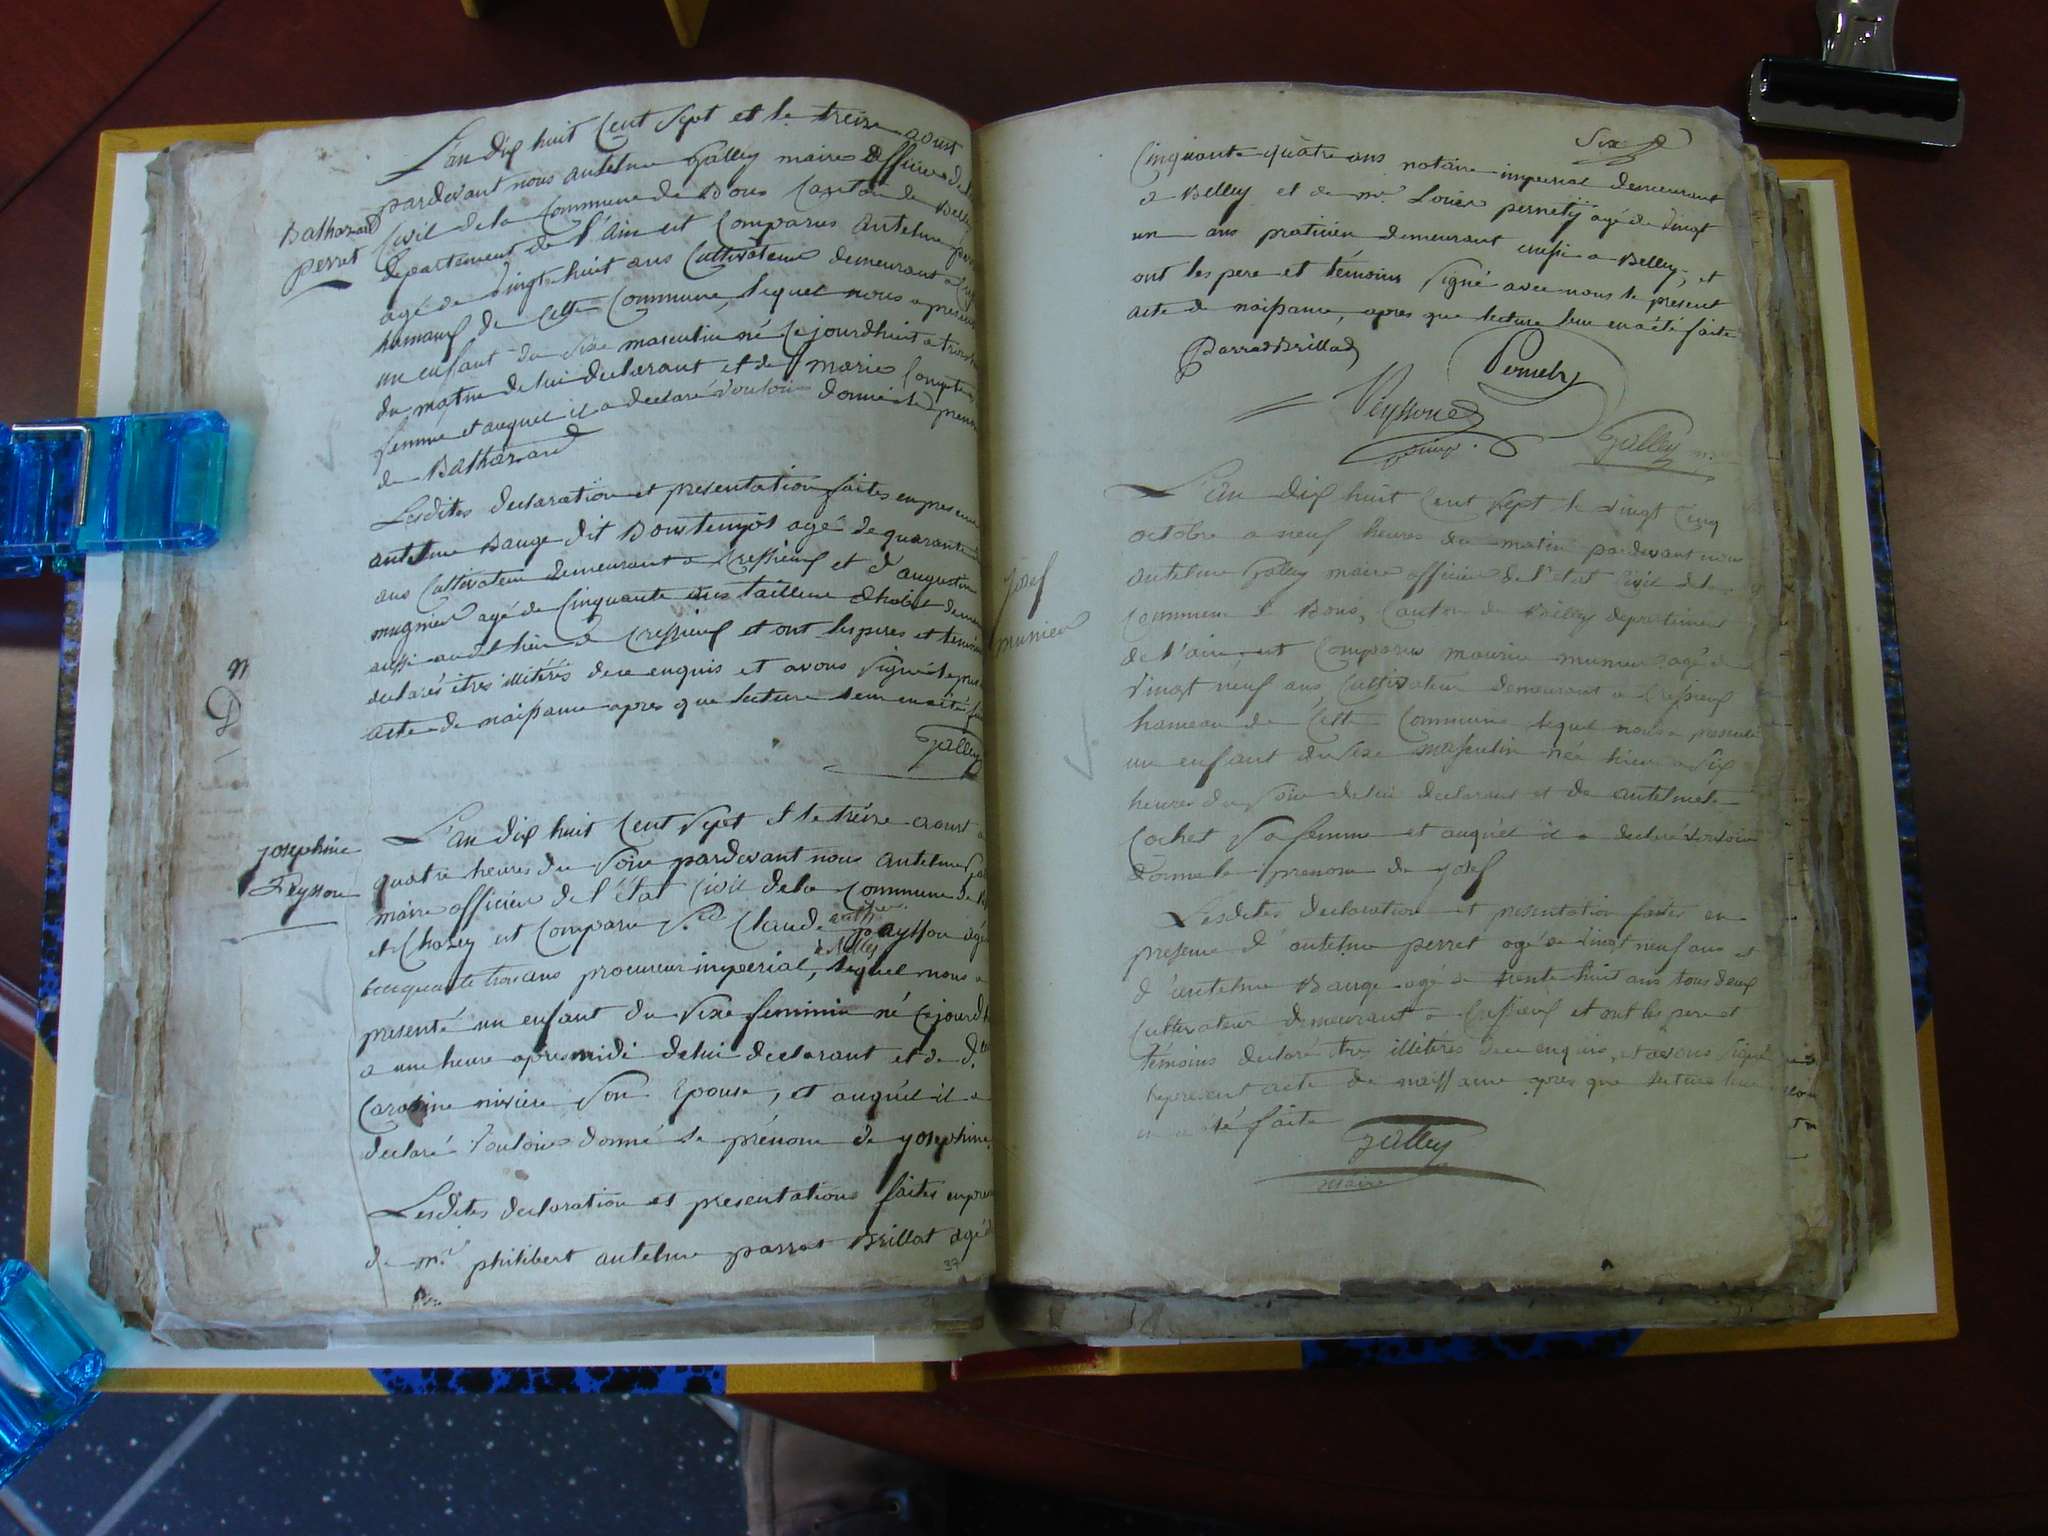 Balthazard
perret
L'an dix huit Cent Sept et le treize aoust
pardevant nous antelme Galley maire officier de l'
Civil de la Commune de Bons Canton de Belley
departement de l'Ain est Comparus antelme
agé de vingt huit ans Cultivateur demeurant a
hameau de Cette Commune, lequel nous a presenté
un enfant du sexe masculin né Cejourdhuit a trois
du matin de lui declarant et de marie
femme et auquel il a declaré vouloir donné le prenom
de Balthazard
Lesdites declaration et presentation faites en presence
antelme Bauge dit agé de quarante
ans Cultivateur demeurant a Cressieux et d'augustin
mugnier agé de Cinquante ans tailleur d'habit
aussi audit lieu de Cressieux et ont les peres et temoins
declarés etres illitérés de ce enquis et avons signé le
acte de naissance apres que lecture leur en a été
Galley
josephine
Peysson
L'an dix huit Cent Sept et le treize aoust a
quatre heures du soir pardevant nous antelme
maire officier de l'Etat Civil de la Commune de
et Chazey est Comparu Sr. Claude
Peysson agé
a Belley
Cinquante trois ans procureur imperial, lequel nous a
presenté un enfant du sexe feminin né Cejourdh
a une heure apres midi de lui declarant et de
son Epouse, et auquel il a
declaré vouloir donné le prénom de josephine.
Lesdites declaration et presentations faites en
de mr. philibert antelme parrat Brillat agé
37
Six
Cinquante quatre ans notaire imperial demeurant
a Belley et de mr. Louis pernetÿ agé de vingt
un ans praticien demeurant aussi a Belley, et
ont les pere et témoins signé avec nous le present
acte de naissance, apres que lecture leur en a été faite
Parrat Brillat
Pernety
Peysson
Galley
josef
munier
L'an dix huit Cent Sept le vingt Cinq
octobre a neuf heures du matin pardevant nous
antelme Galley maire officier de l'état Civil de la
Commune de Bons, Canton de Belley departement
de l'ain, est Comparu maurice munier agé de
vingt neuf ans Cultivateur demeurant a Cressieux
hameau de Cette Commune lequel nous a presenté
un enfant du sexe masculin née hier a six
heures du soir de lui declarant et de antelmete
Cochet sa femme et auquel il a declaré vouloir
donner le prenom de josef
Lesdites declaration et presentation faites en
presence d'antelme perret agé de vingt neuf ans et
d'antelme Bauge agé de trente huit ans tous deux
Cultivateur demeurant a Cressieux et ont les pere et
témoins declaré etres illitérés de ce enquis, et avons signé
le present acte de naissance apres que lecture leur
en a été faite
Galley
maire